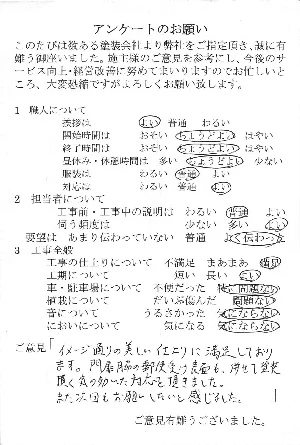 アンケートのお願い
このたびは数ある塗装会社より弊社をご指定頂き、誠に有
難う御座いました。施主様のご意見を参考にし、今後のサ
ービス向上・経営改善に努めてまいりますのでお忙しいと
ころ、大変恐縮ですがよろしくお願い致します。
1 職人について
挨拶は よい 普通 わるい
開始時間は おそい ちょうどよい はやい
終了時間は おそい ちょうどよい はやい
昼休み・休憩時間は 多い ちょうどよい 少ない
服装は わるい 普通 よい
対応は わるい 普通 よい
2 担当者について
工事前・工事中の説明は わるい 普通 よい
伺う頻度は 少ない 多い よい
要望は あまり伝わっていない 普通 よく伝わった
3 工事全般
工事の仕上りについて 不満足 まあまあ 満足
工期について 短い 長い よい
車・駐車場について 不便だった 特に問題ない
植栽について だいぶ傷んだ 問題ない
音について うるさかった 気にならない
においについて 気になる 気にならない
ご意見「イメージ通りの美しい仕上りに満足しており
ます。門扉脇の郵便受け裏面も、併せて塗装
頂く気の効いた対応を頂きました。
また次回もお願いしたいと感じました。 」
ご意見有難うございました。